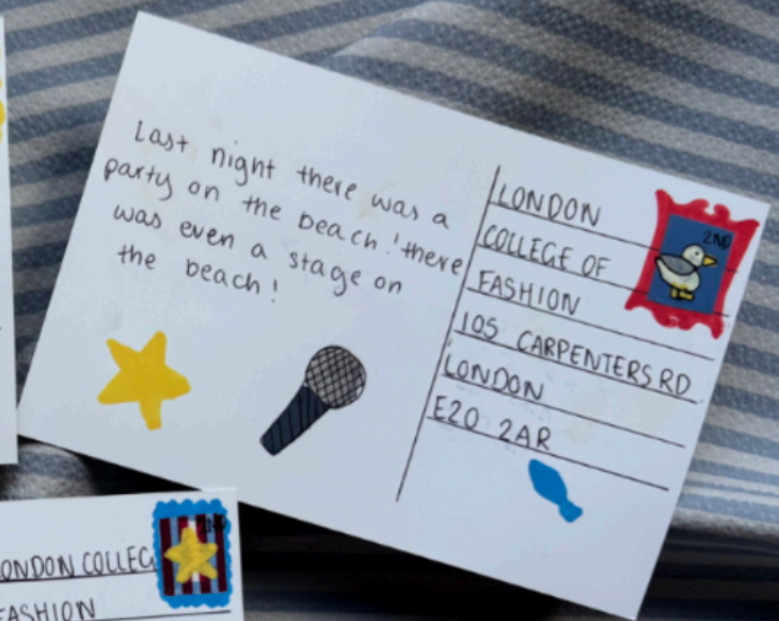 Last night there was a
party on the beach! there
was even a stage on
the beach!
LONDON
COLLEGE OF
FASHION
105 CARPENTERS RD
LONDON
E20 2AR
2ND
LONDON COLLEG
FASHION
2ND